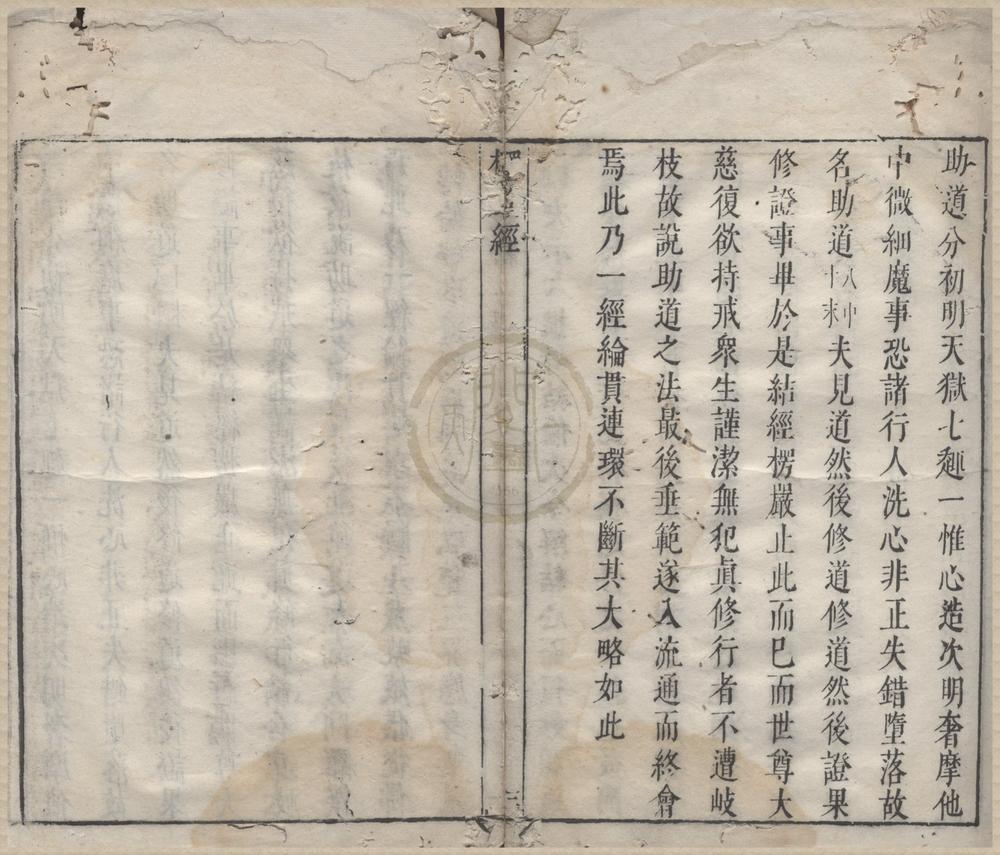 助道分初明天獄七趣一惟心造次明奢摩他
中微細魔事恐諸行人洗心非正失錯墮落故
名助道夫見道然後修道修道然後證果
修證事畢於是結經楞嚴止此而已而世尊大
慈復欲持戒衆生謹潔無犯眞修行者不遭岐
枝故說助道之法最後垂範遂入流通而終會
焉此乃一經綸貫連環不斷其大略如此
經